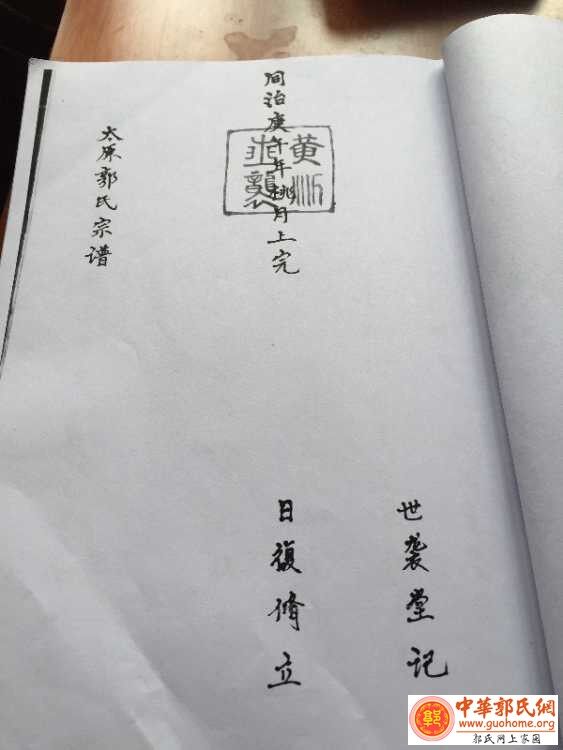 世袭堂记
同治庚午年桃月上完
日複脩立
黄
世襲
太原郭氏宗谱
中華郭氏網
www.guohome.org
郭氏网上家园